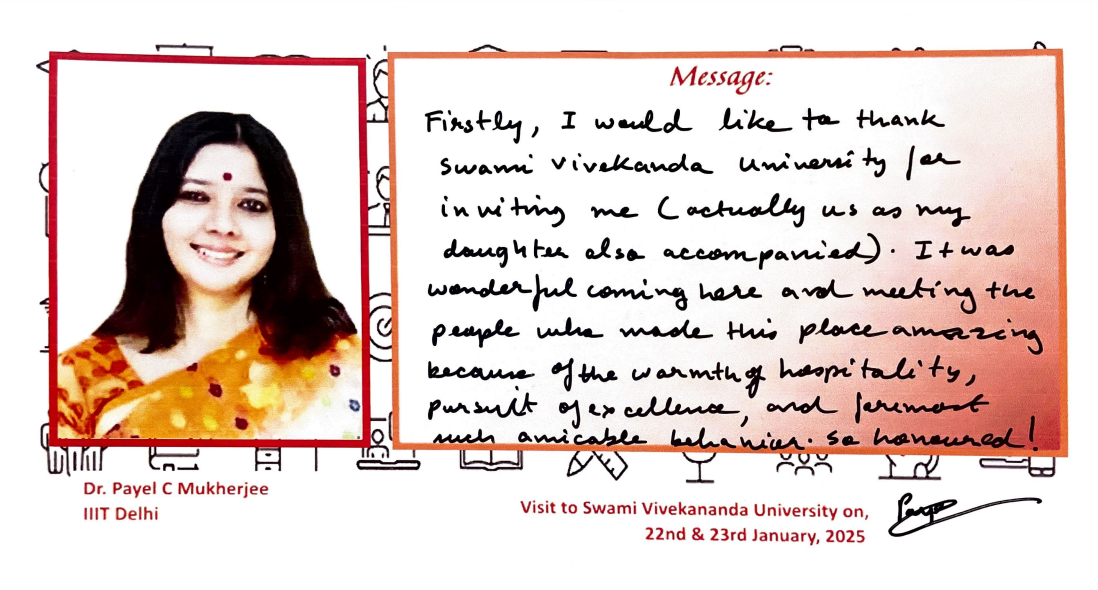 Message:
Firstly, I would like to thank
swami vivekanda university for
inviting me (actually us as my
daughter also accompanied). It was
wonderful coming here and meeting the
people who made this place amazing
because of the warmth of hospitality,
pursuit of excellence, and foremost
such amicable behavior. So honoured!
Dr. Payel C Mukherjee
IIIT Delhi
Visit to Swami Vivekananda University on,
22nd & 23rd January, 2025